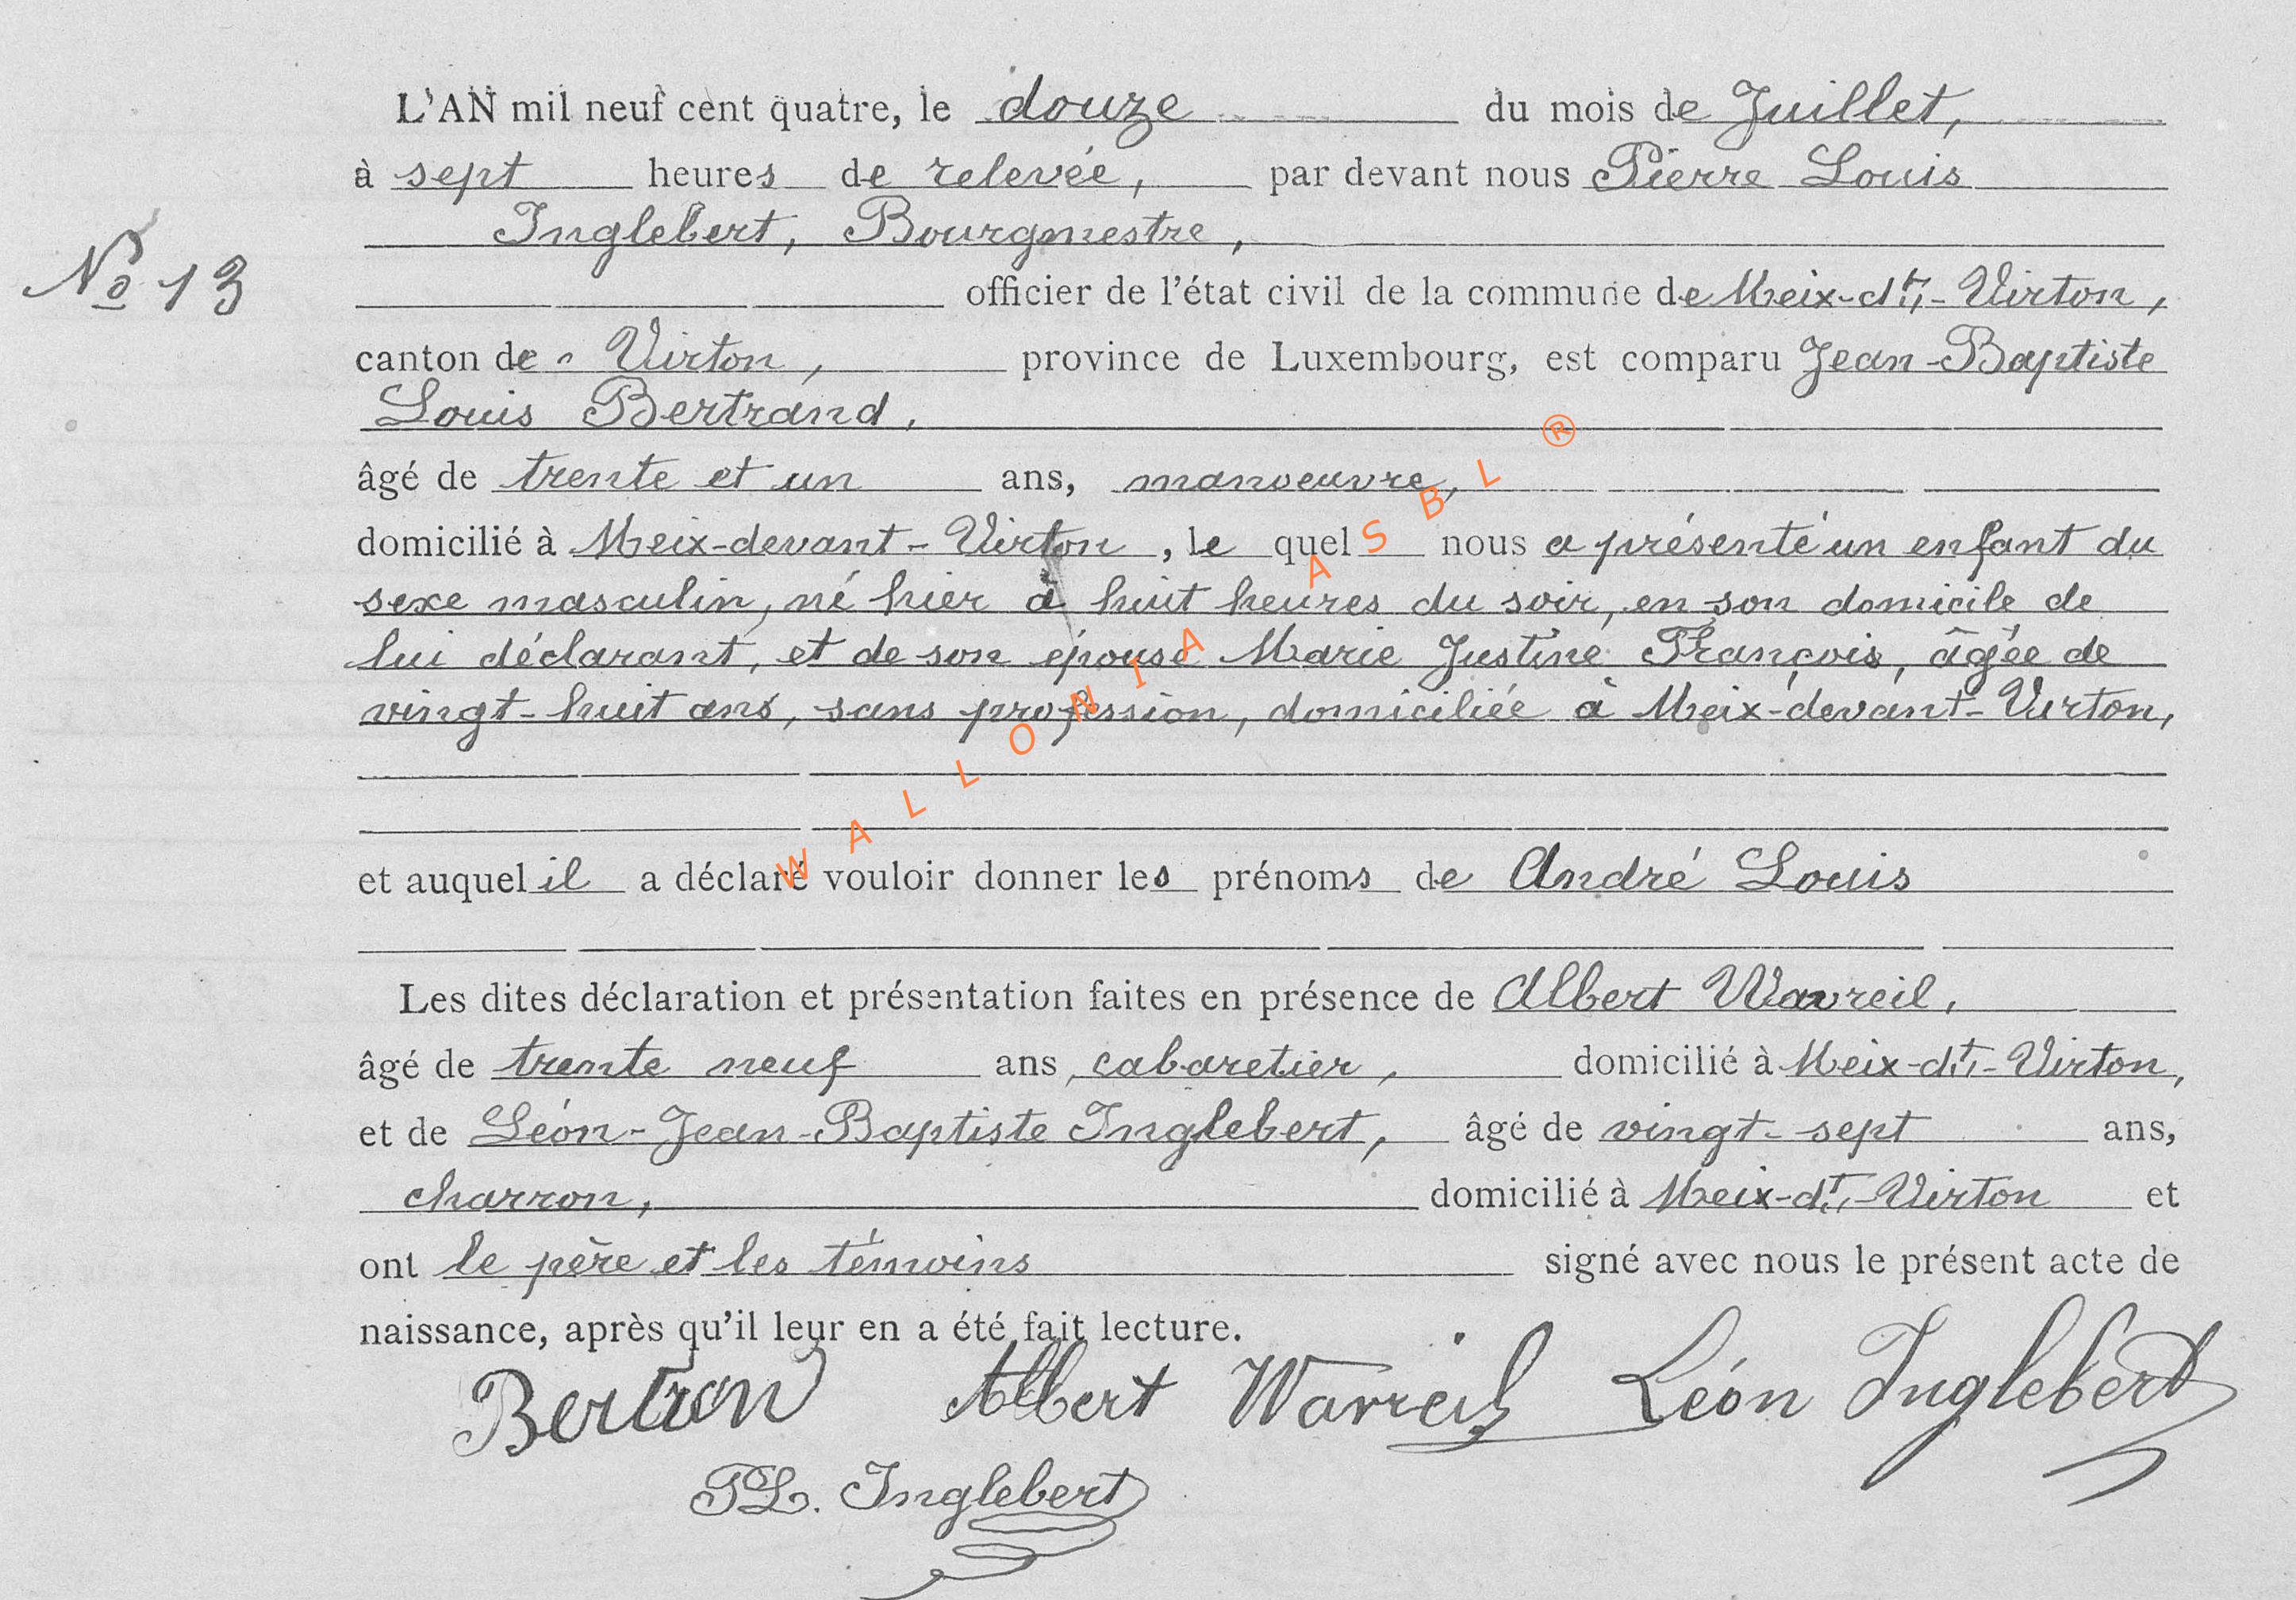 L'AN mil neuf cent quatre, le douze du mois de Juillet,
à sept heures de relevée, par devant nous Pierre Louis
Inglebert, Bourgmestre,
No 13
officier de l'état civil de la commune de Meix-dt,-Virton,
canton de Virton, province de Luxembourg, est comparu Jean-Baptiste
Louis Bertrand,
âgé de trente et un ans, manoeuvre,
domicilié à Meix-devant-Virton, le quel nous a présenté un enfant du
sexe masculin, né hier à huit heures du soir, en son domicile de
lui déclarant, et de son épouse Marie Justine François, âgée de
vingt-huit ans, sans profession, domiciliée à Meix-devant-Virton,
et auquel il a déclaré vouloir donner les prénoms de André Louis
Les dites déclaration et présentation faites en présence de Albert Wavreil,
âgé de trente neuf ans, cabaretier, domicilié à Meix-dt,-Virton,
et de Léon-Jean-Baptiste Inglebert, âgé de vingt-sept ans,
charron, domicilié à Meix-dt,-Virton et
ont le père et les témoins signé avec nous le présent acte de
naissance, après qu'il leur en a été fait lecture.
Albert Léon Inglebert
PL. Inglebert
WALLONIA ASBL ®